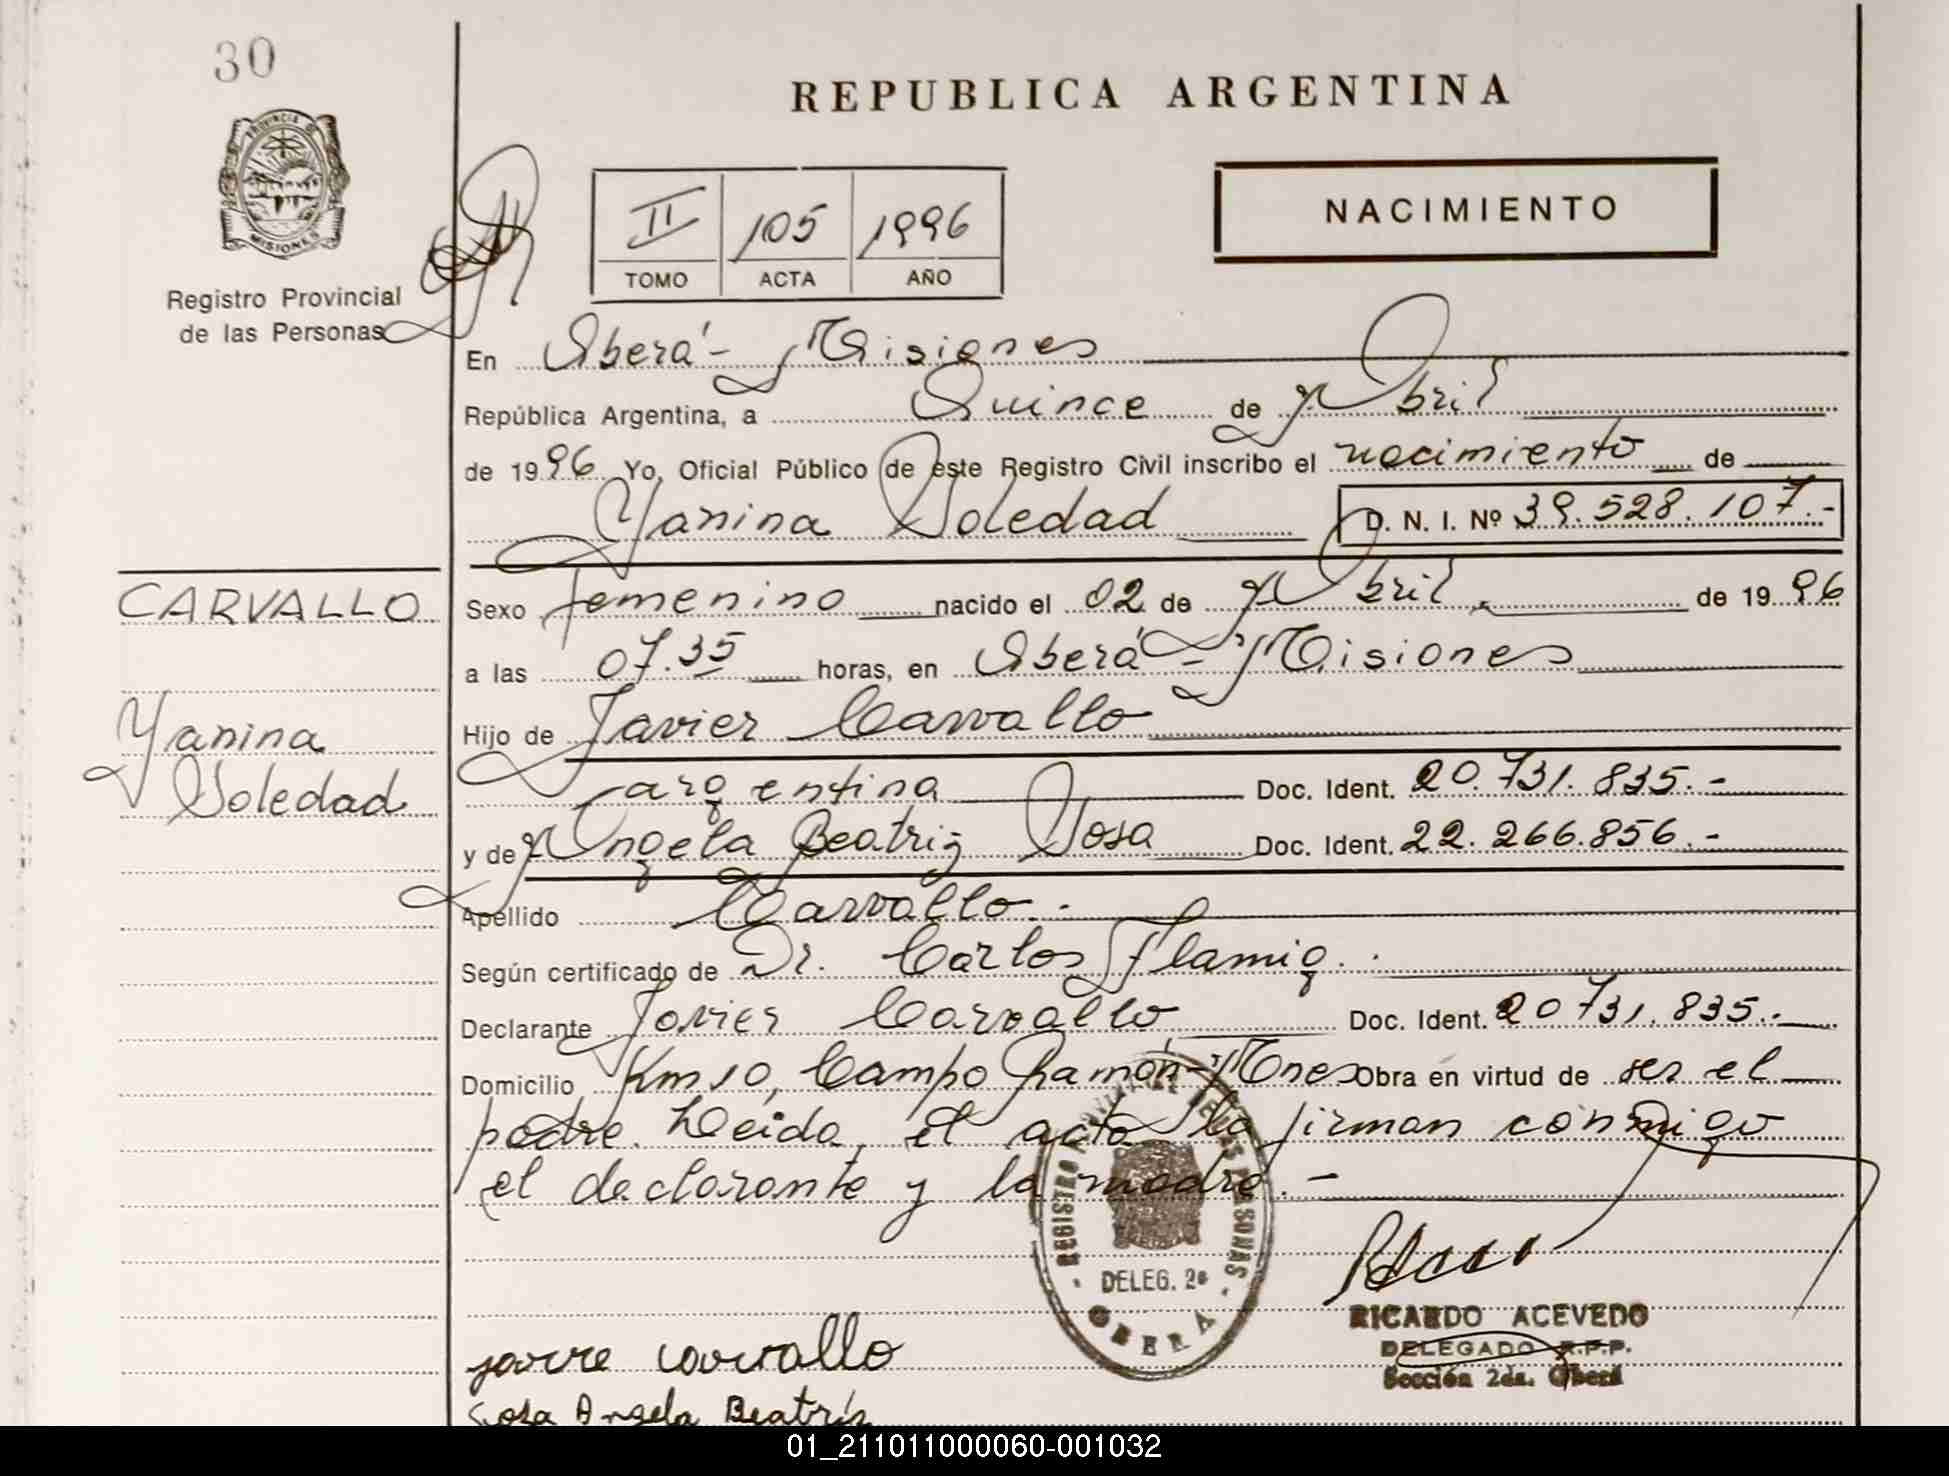 30
REPUBLICA ARGENTINA
PROVINCIA DE
MISIONES
Registro Provincial
de las Personas
II 105 1996
TOMO ACTA AÑO
NACIMIENTO
En Oberá - Misiones
República Argentina, a Quince de Abril
de 1996 Yo, Oficial Público de este Registro Civil inscribo el nacimiento de
Yanina Soledad D. N. I. Nº 39.528.107.-
CARVALLO
Yanina
Soledad
Sexo femenino nacido el 02 de Abril de 1996
a las 07.35 horas, en Oberá - Misiones
Hijo de Javier Carvallo
argentina Doc. Ident. 20.731.835.-
y de Angela Beatriz Sosa Doc. Ident. 22.266.856.-
Apellido Carvallo.-
Según certificado de Dr. Carlos Flamig.
Declarante Javier Carvallo Doc. Ident. 20731.835.-
Domicilio Km 10, Campo Ramón - Mnes Obra en virtud de ser el
padre. Leída el acta la firman conmigo
el declarante y la madre.-
REGISTRO PROVINCIAL DE LAS PERSONAS
DELEG. 2ª
OBERA
RICARDO ACEVEDO
DELEGADO R.P.P.
Sección 2da. Oberá
carvallo
Sosa Angela Beatris
01_211011000060-001032